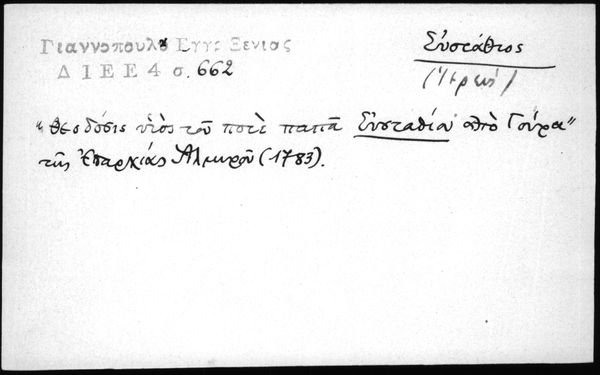 Γιαννοπουλου Εγγρ Ξενιας
Δ Ι Ε Ε 4 σ. 662
Εὐστάθιος
(Ἱερεύς)
"Θεοδόσις υἱὸς τοῦ ποτὲ παπᾶ Εὐσταθίου ἀπὸ Γούρα"
τῆς Ἐπαρχίας Ἁλμυροῦ (1783).